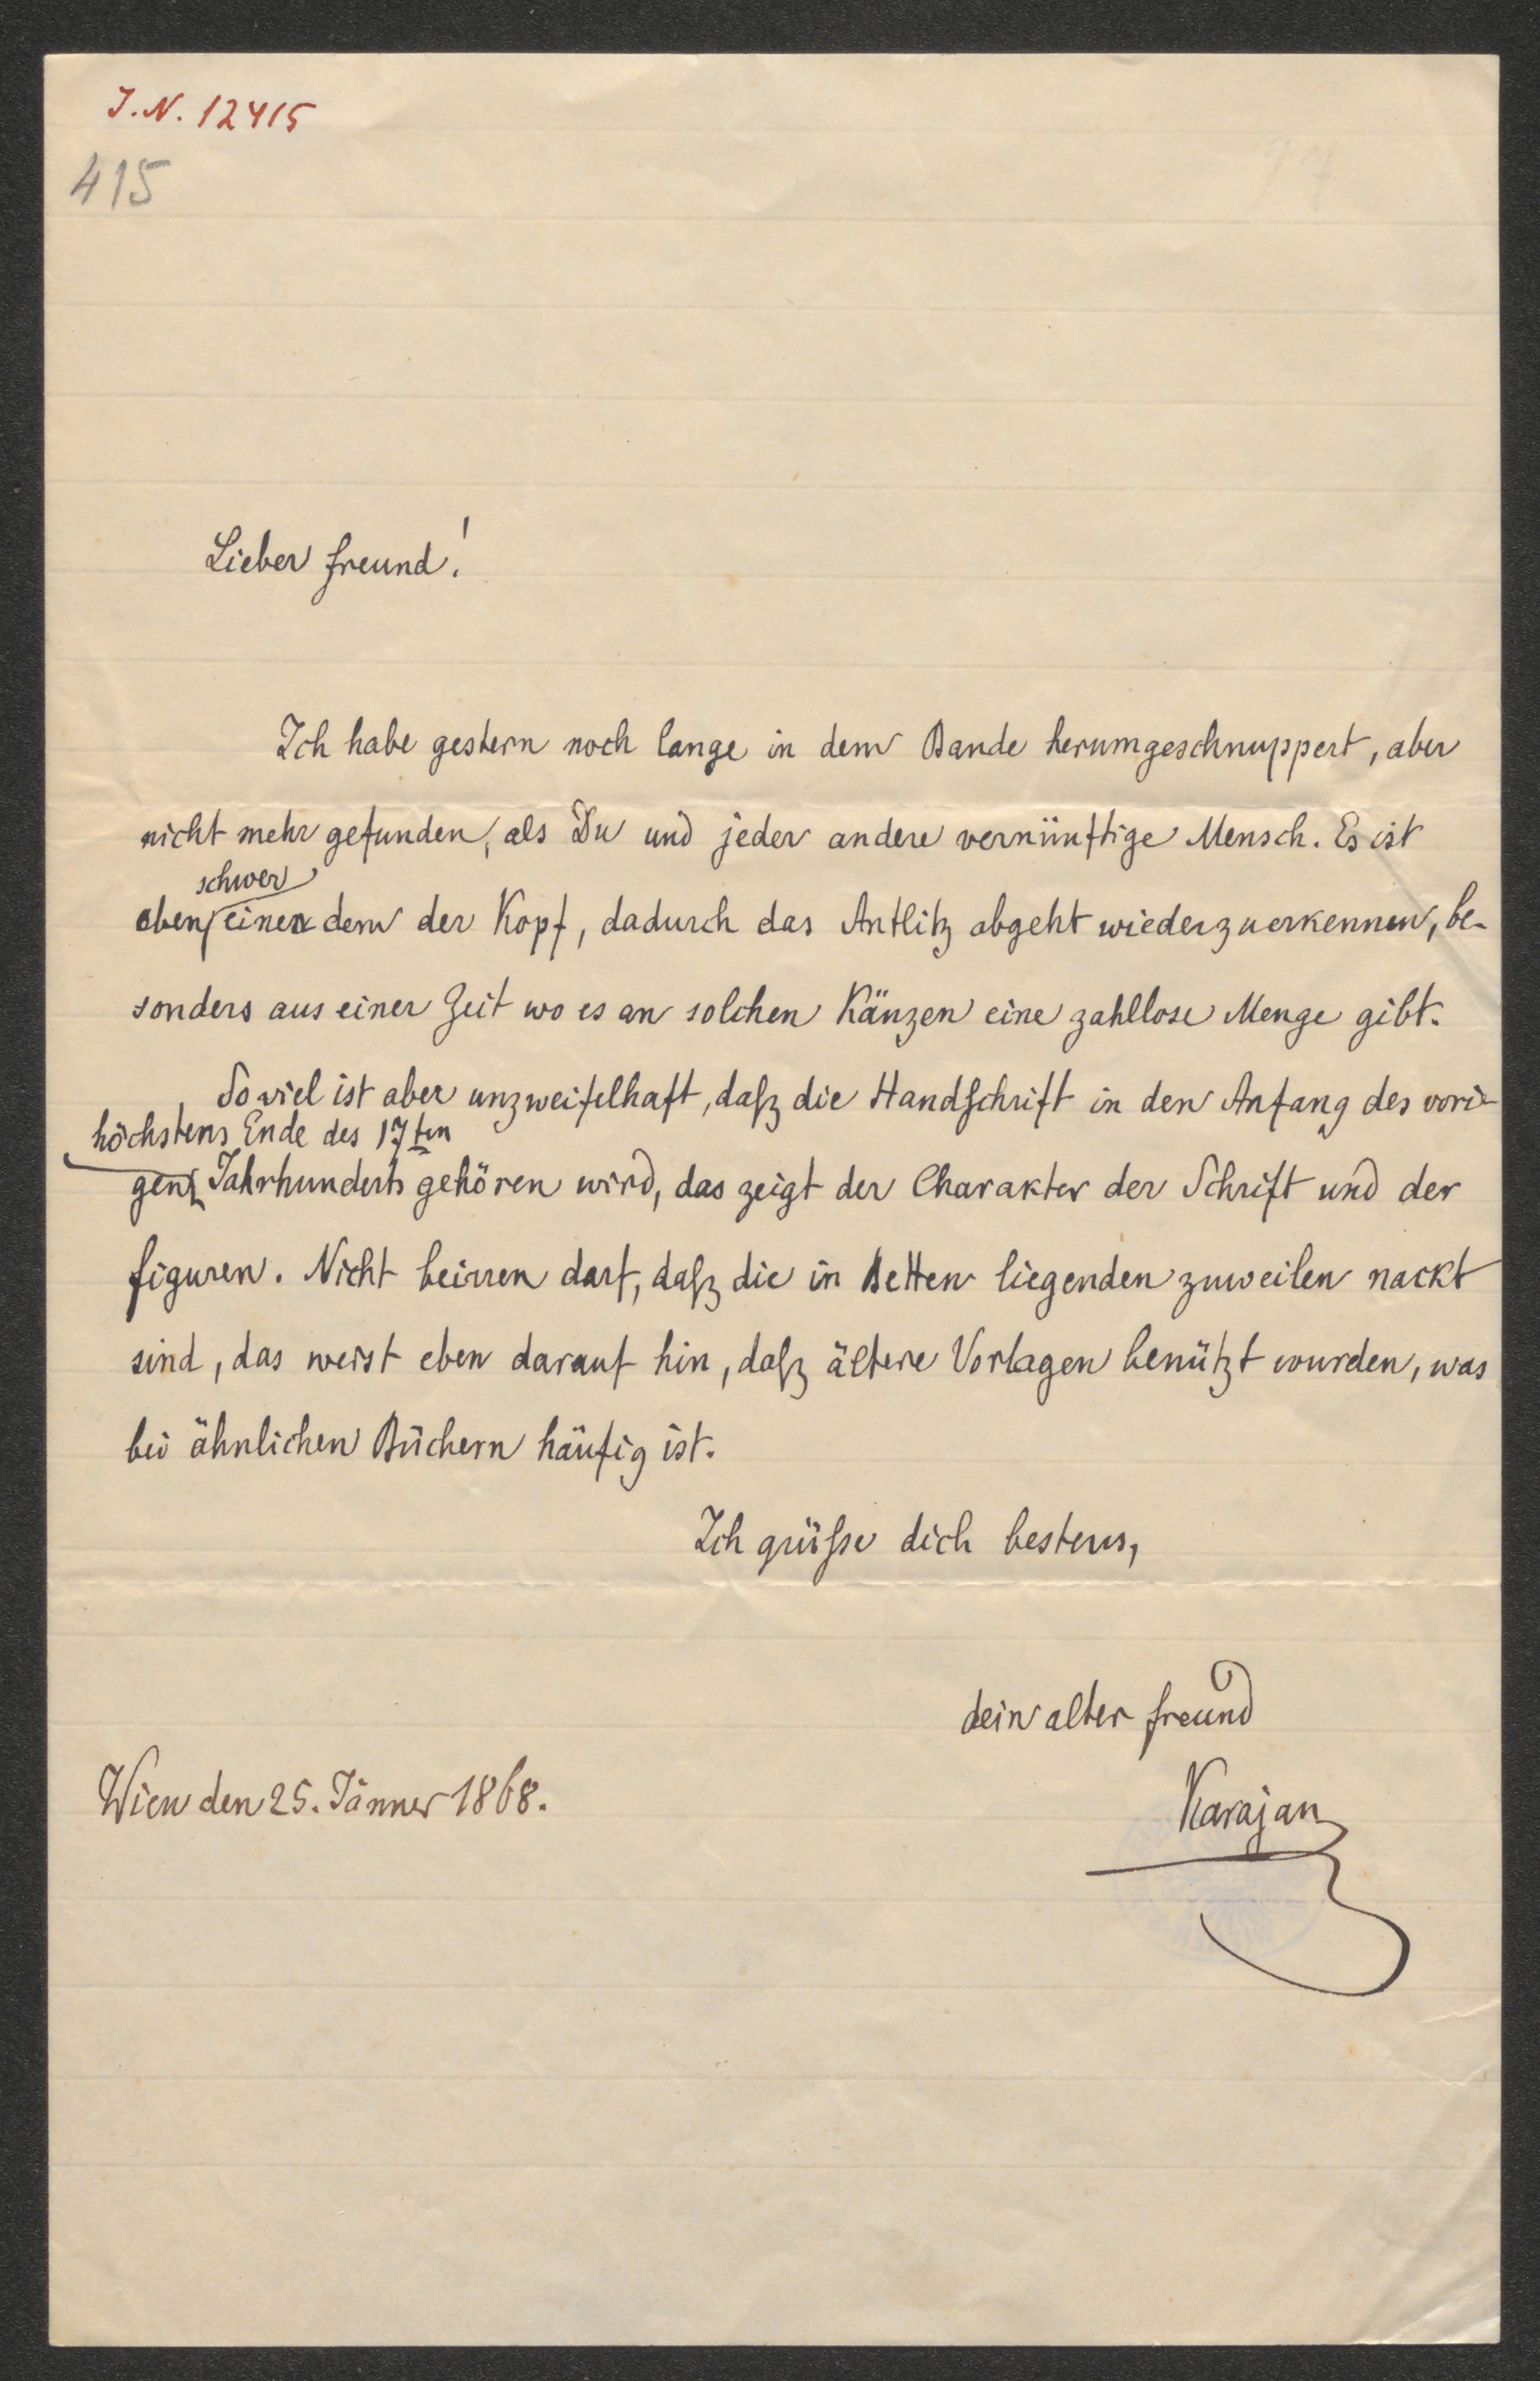 I. N. 12415
415
Lieber freund!
Ich habe gestern noch lange in dem Bande herumgeschnuppert, aber
nicht mehr gefunden, als Du und jeder andere vernünftige Mensch. Es ist
schwer
eben einen dem der Kopf, dadurch das Antlitz abgeht wiederzuerkennen, be-
sonders aus einer Zeit wo es an solchen Känzen eine zahllose Menge gibt.
So viel ist aber unzweifelhaft, daſz die Handſchrift in den Anfang des vori-
höchstens Ende des 17ten
gen Jahrhunderts gehören wird, das zeigt der Charakter der Schrift und der
figuren. Nicht beirren darf, daſz die in Betten liegenden zuweilen nackt
sind, das weist eben darauf hin, daſz ältere Vorlagen benützt wurden, was
bei ähnlichen Büchern häufig ist.
Ich grüſse dich bestens,
dein alter freund
Wien den 25. Jänner 1868.
Karajan